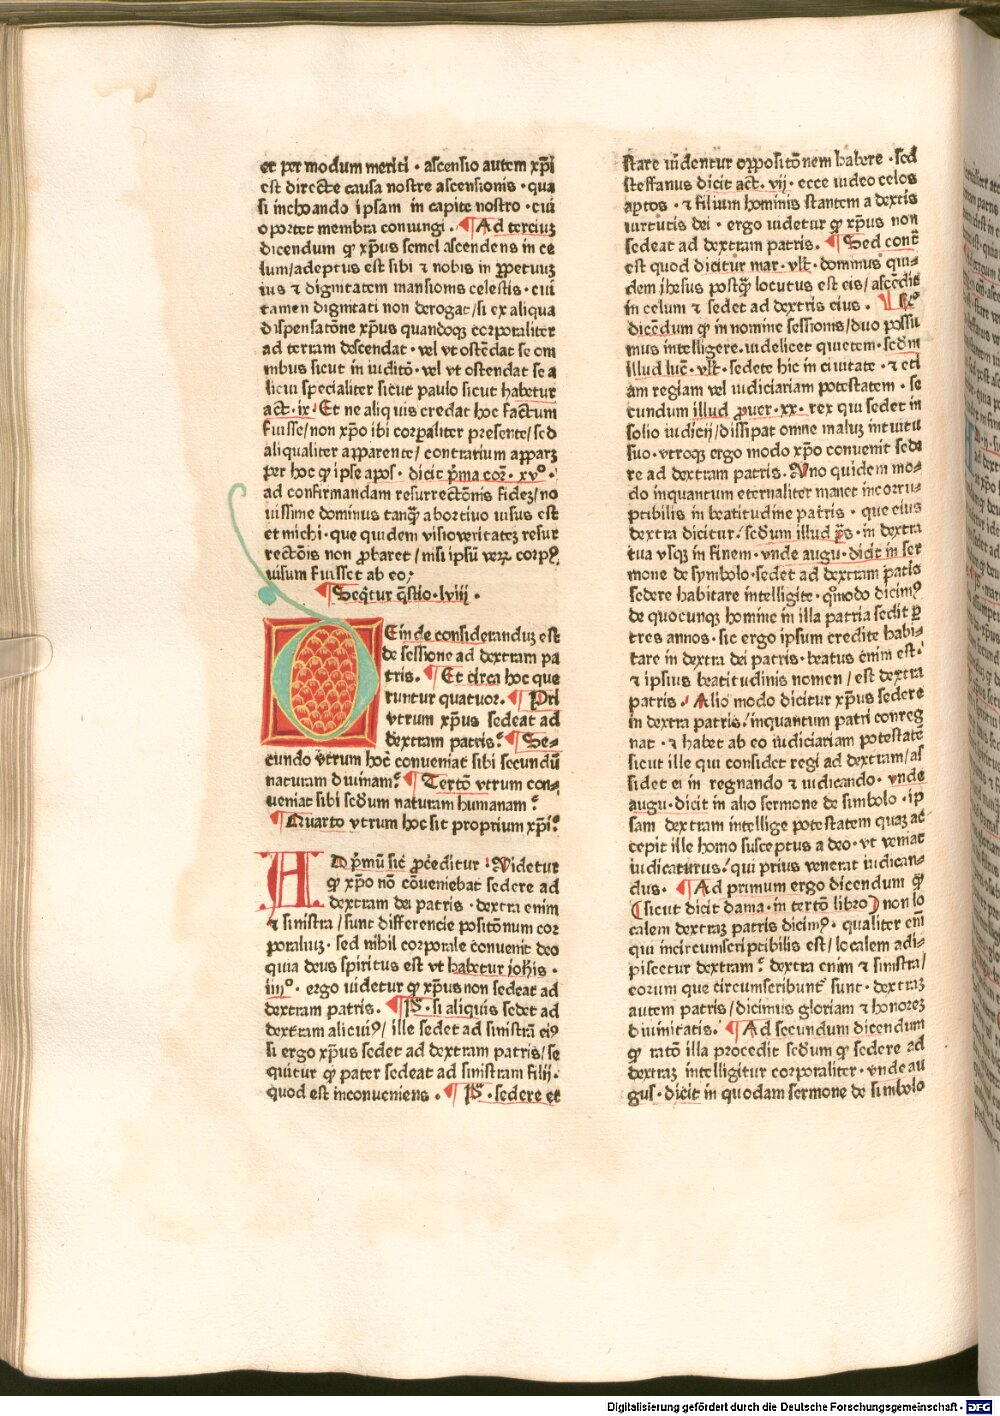 et per modum meriti · ascensio autem xp̄i
est directe causa nostre ascensionis · qua
si inchoando ipsam in capite nostro · cui
oportet membra coniungi . ¶ Ad terciuꝫ
dicendum ꝙ xp̄us semel ascendens in ce
lum/adeptus est sibi ⁊ nobis in ꝑpetuuꝫ
ius ⁊ dignitatem mansionis celestis · cui
tamen dignitati non derogat/si ex aliqua
dispensatōne xp̄us quandoqꝫ corporaliter
ad terram descendat · vel vt ostēdat se om
nibus sicut in iuditō · vel vt ostendat se a
licui specialiter sicut paulo sicut habetur
act̄ · ix · Et ne aliquis credat hoc factum
fuisse/non xp̄o ibi corꝑaliter presente/sed
aliqualiter apparente/ contrarium apparꝫ
per hoc ꝙ ipse apōs · dicit p̄ma cor̄ · xvº ·
ad confirmandam resurrectōnis fideꝫ/no
uissime dominus tanqꝫ abortiuo uisus est
et michi · que quidem visio veritateꝫ resur
rectōis non ꝓbaret/nisi ipsū verꝫ corpꝰ
uisum fuisset ab eo/
¶ Seq̄tur q̄stio · lviii ·
DEinde consideranduꝫ est
de sessione ad dextram pa
tris. ¶ Et circa hoc que
runtur quatuor. ¶ Pri
vtrum xp̄us sedeat ad
dextram patris? ¶ Se-
cundo vtrum hoc conueniat sibi secundū
naturam diuinam? ¶ Tertō vtrum con-
ueniat sibi scd̄um naturam humanam?
¶ Quarto vtrum hoc sit proprium xp̄i?
AD p̄mū sic ꝓceditur · Videtur
ꝙ xp̄o nō cōueniebat sedere ad
dextram dei patris · dextra enim
⁊ sinistra/sunt differencie positōnum cor
poraliuꝫ · sed nihil corporale conuenit deo
quia deus spiritus est vt habetur joh̄is ·
iiiiº · ergo uidetur ꝙ xp̄us non sedeat ad
dextram patris . ¶ P̄ · si aliquis sedet ad
dextram alicuiꝰ/ ille sedet ad sinistrā eiꝰ
si ergo xp̄us sedet ad dextram patris/se
quitur ꝙ pater sedeat ad sinistram filij ·
quod est inconueniens . ¶ P̄ · sedere et
stare uidentur oppositōnem habere · sed
steffanus dicit act̄ · vij · ecce uideo celos
aptos · ⁊ filium hominis stantem a dextris
uirtutis dei · ergo uidetur ꝙ xp̄us non
sedeat ad dextram patris . ¶ Sed cont̄
est quod dicitur mar · vlt̄ · dominus qui-
dem jhesus postqꝫ locutus est eis/ ascēdit
in celum ⁊ sedet ad dextris eius .
dicēdum ꝙ in nomine sessionis/duo possu
mus intelligere · uidelicet quietem · scd̄m
illud luc̄ · vlt̄ · sedete hic in ciuitate · ⁊ eti
am regiam vel iudiciariam potestatem · se
cundum illud ꝓuer · xx · rex qui sedet in
solio iudicij/dissipat omne maluꝫ intuitu
suo · vtroqꝫ ergo modo xp̄o conuenit sede
re ad dextram patris · Vno quidem mo-
do inquantum eternaliter manet incorru-
ptibilis in beatitudine patris · que eius
dextra dicitur/ scd̄um illud p̄s · in dextra
tua vsqꝫ in finem · vnde augu · dicit in ser
mone de symbolo · sedet ad dextram patis
sedere habitare intelligite · qn̄odo dicimꝰ
de quocunqꝫ homine in illa patria sedit ꝑ
tres annos · sic ergo ipsum credite habi-
tare in dextra dei patris · beatus enim est ·
⁊ ipsius beatitudinis nomen/ est dextra
patris · Alio modo dicitur xp̄us sedere
in dextra patris/ inquantum patri conreg
nat · ⁊ habet ab eo iudiciariam potestatē
sicut ille qui considet regi ad dextram/as
sidet ei in regnando ⁊ iudicando · vnde
augu · dicit in alio sermone de simbolo · ip
sam dextram intellige potestatem quaꝫ ac
cepit ille homo susceptus a deo · vt veniat
iudicaturus/ qui prius venerat iudican-
dus · ¶ Ad primum ergo dicendum ꝙ
(sicut dicit dama · in tertō libro) non lo
calem dextraꝫ patris dicimꝰ · qualiter em̄
qui incircumscriptibilis est/localem adi-
pisceretur dextram? dextra enim ⁊ sinistra/
eorum que circumscribunt̄ sunt · dextraꝫ
autem patris/dicimus gloriam ⁊ honoreꝫ
diuinitatis/ ¶ Ad secundum dicendum
ꝙ ratō illa procedit scd̄um ꝙ sedere ad
dextraꝫ intelligitur corporaliter · vnde au
gus̄ · dicit in quodam sermone de simbolo
Digitalisierung gefördert durch die Deutsche Forschungsgemeinschaft - DFG